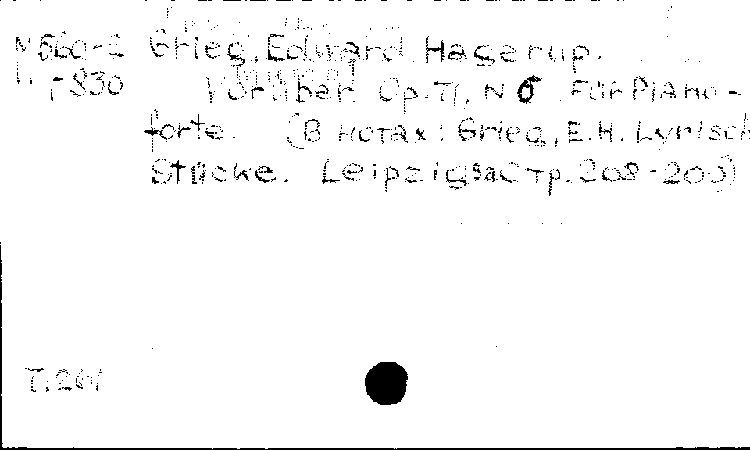 М560-2 Grieg, Edward Hagerup.
Г-830 Vorüber. Op. 71, N 6. Für Piano-
forte. (В нотах: Grieg, E.H. Lyrisch
Stücke. Leipzig sa Стр. 208-209)
Т.261